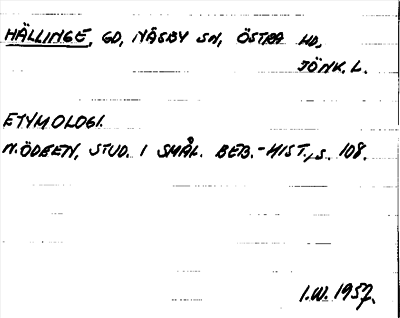 HÄLLINGE, GD, NÄSBY SN, ÖSTRA HD,
JÖNK. L.
ETYMOLOGI.
N. ÖDEEN, STUD. I SMÅL. BEB.-HIST., S. 108.
I.W. 1957.